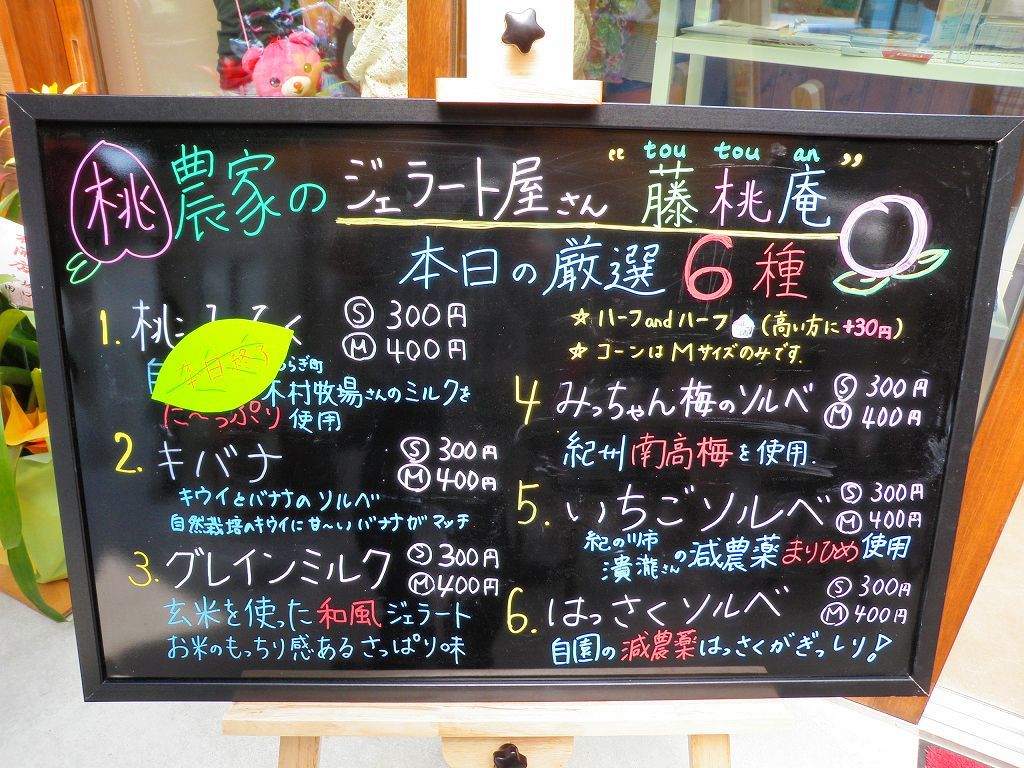 "tou tou an"
桃農家のジェラート屋さん 藤桃庵
本日の厳選6種
1. 桃 Ⓢ 300円
Ⓜ 400円
本日終了
らぎ町
木村牧場さんのミルクを
に〜っぷり使用
2. キバナ Ⓢ 300円
Ⓜ 400円
キウイとバナナのソルベ
自然栽培のキウイに甘〜いバナナがマッチ
3. グレインミルク Ⓢ 300円
Ⓜ 400円
玄米を使った和風ジェラート
お米のもっちり感あるさっぱり味
☆ ハーフandハーフ (高い方に+30円)
☆ コーンはMサイズのみです.
4 みっちゃん梅のソルベ Ⓢ 300円
Ⓜ 400円
紀州南高梅を使用.
5. いちごソルベ Ⓢ 300円
Ⓜ 400円
紀の川市
瀧さんの減農薬まりひめ使用
6. はっさくソルベ Ⓢ 300円
Ⓜ 400円
自園の減農薬はっさくがぎっしり!